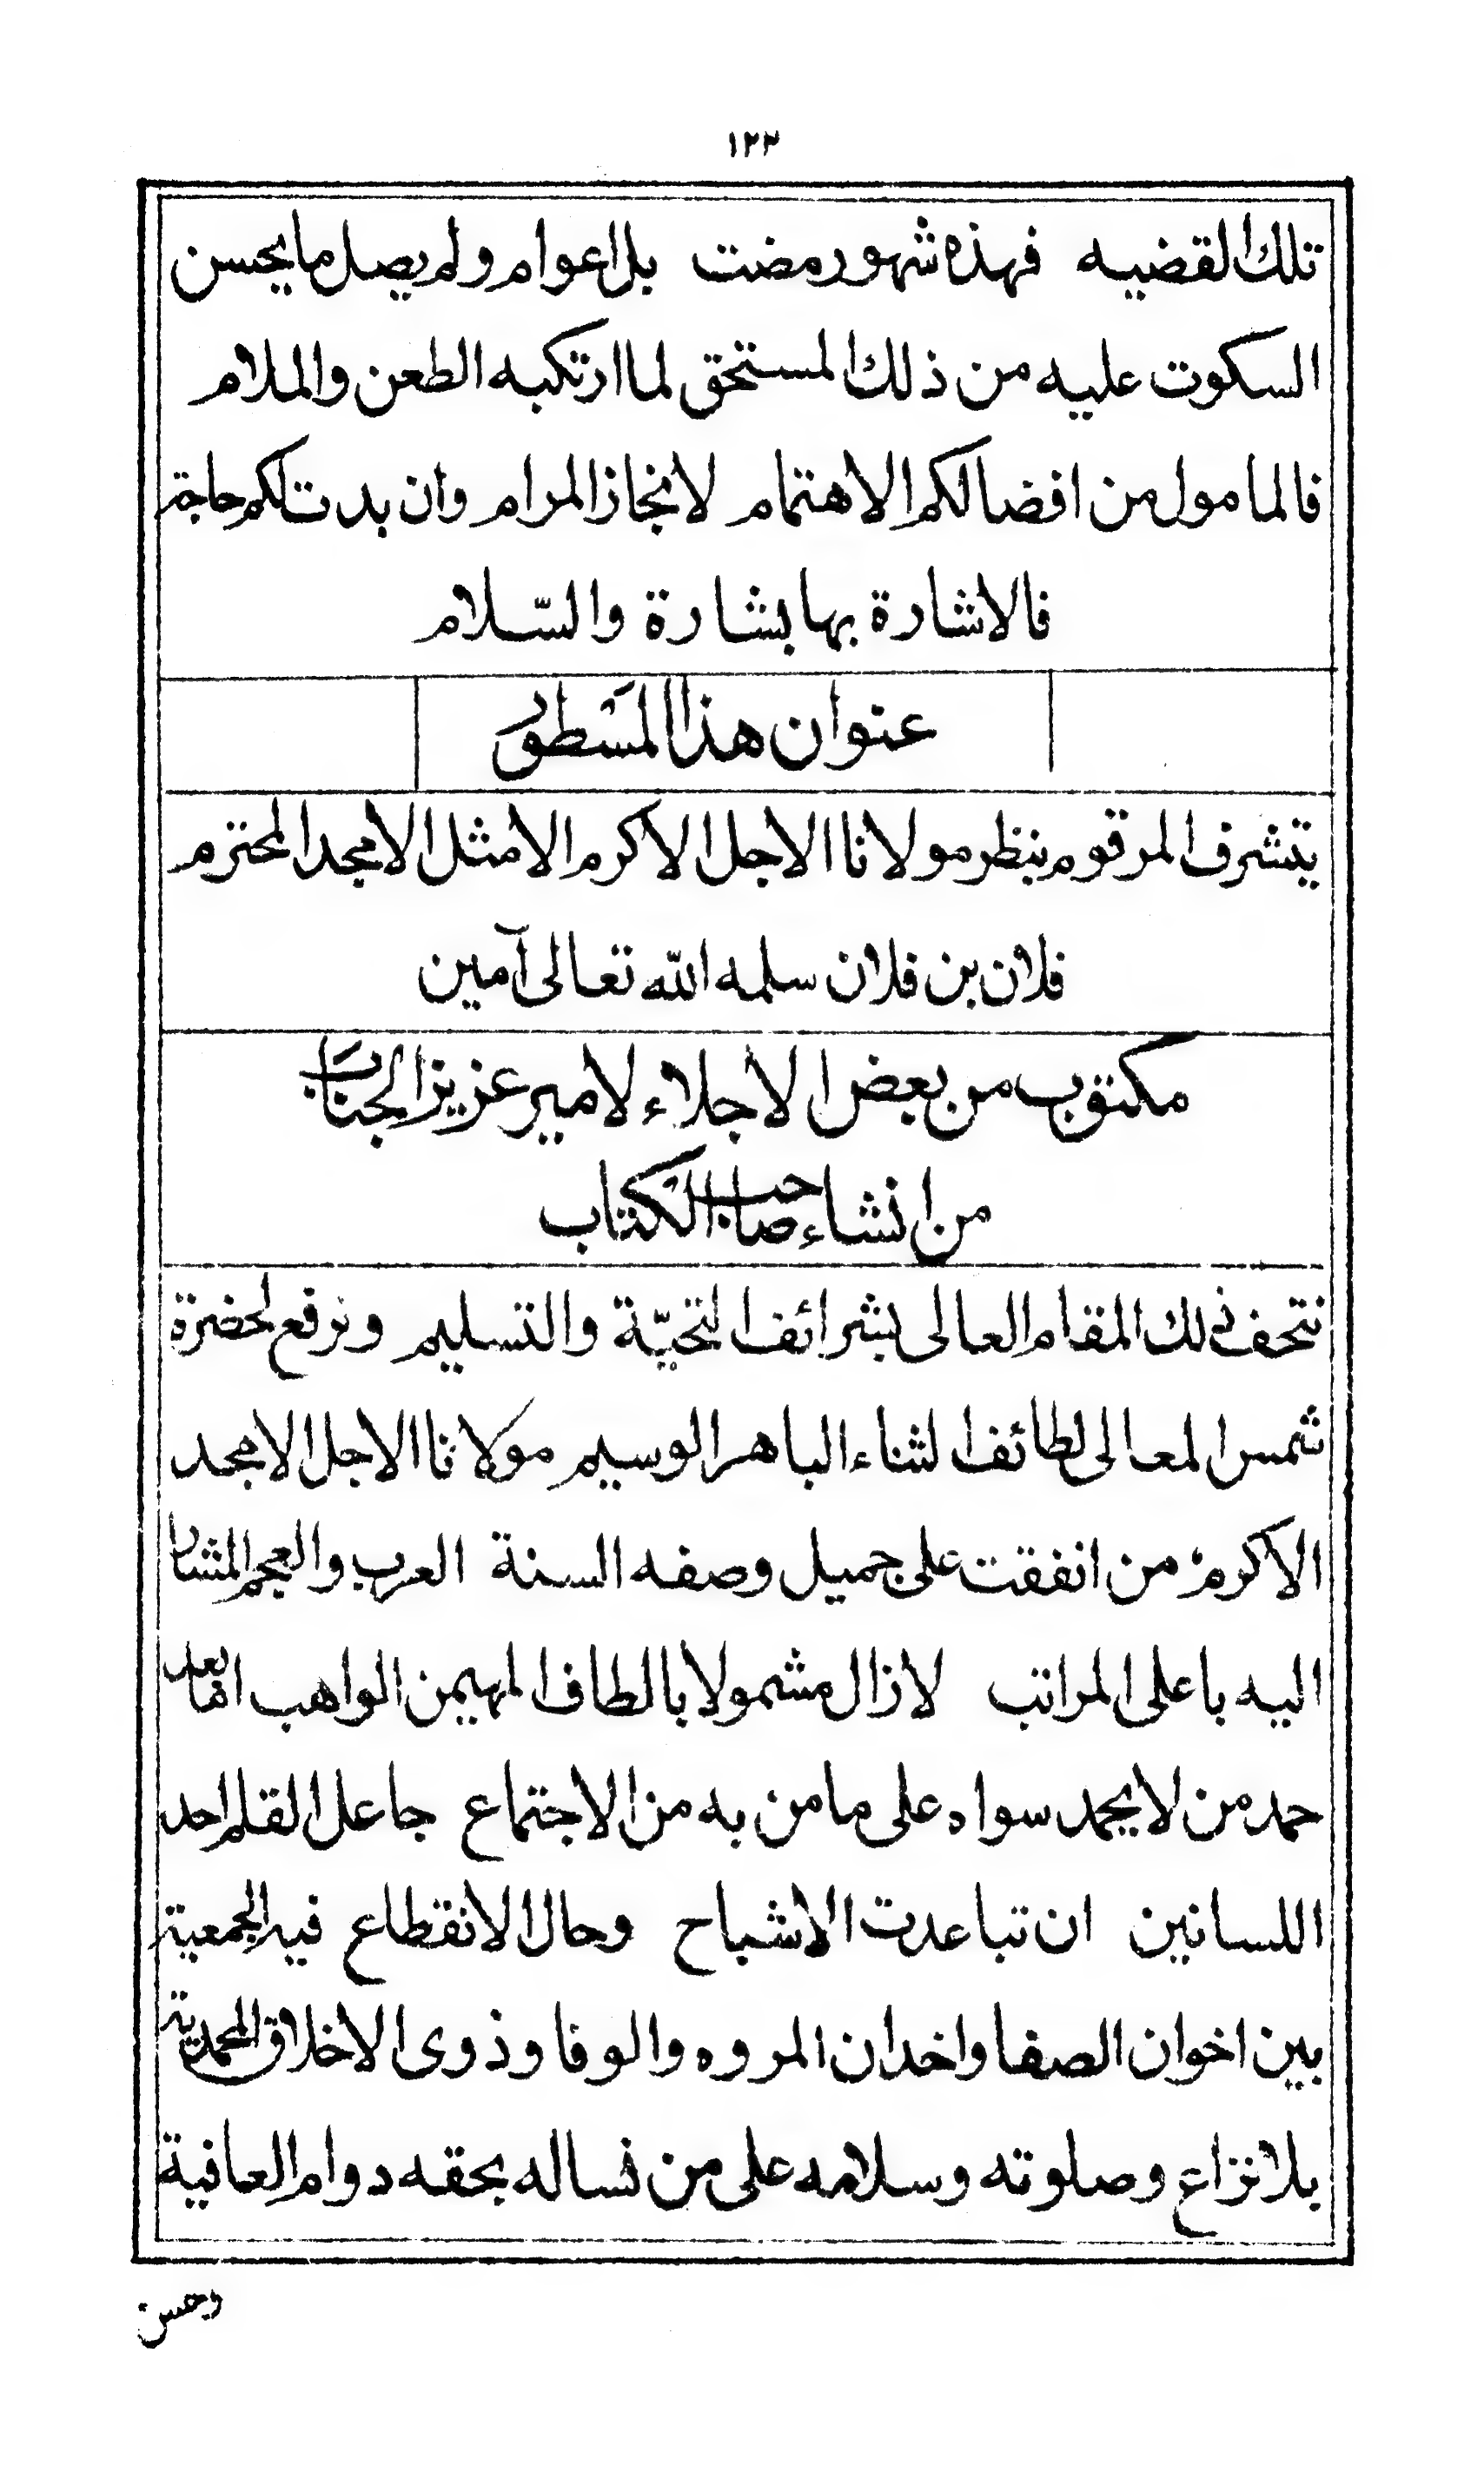 ١٢٣
تلك القضيه فهذه شهور مضت بل اعوام ولم يصل ما يحسن
السكوت عليه من ذلك المستحق لما ارتكبه الطعن والملام
فالمامول من افضالكم الاهتمام لانجاز المرام وان بدت لكم حاجة
فالاشارة بها بشارة والسّلام
عنوان هذا المسطور
يتشرف المرقوم بنظر مولانا الاجل الاكرم الامثل الامجد المحترم
فلان بن فلان سلمه الله تعالى آمين
مكتوب من بعض الاجلاء لامير عزيز الجناب
من انشاء صاحب الكتاب
نتحف ذلك المقام العالى بشرائف التحيّة والتسليم ونرفع لحضرة
شمس المعالى لطائف الثناء الباهر الوسيم مولانا الاجل الامجد
الاكرم من اتفقت على جميل وصفه السنة العرب والعجم المشار
اليه باعلى المراتب لازال مشمولا بالطاف المهيمن الواهب اما بعد
حمد من لا يحمد سواه على ما من به من الاجتماع جاعل القلم احد
اللسانين ان تباعدت الاشباح وحال الانقطاع فيه الجمعية
بين اخوان الصفا واخدان المروه والوفا وذوى الاخلاق المحمدية
بلا نزاع وصلوته وسلامه على من نساله بحقه دوام العافية
وحسن